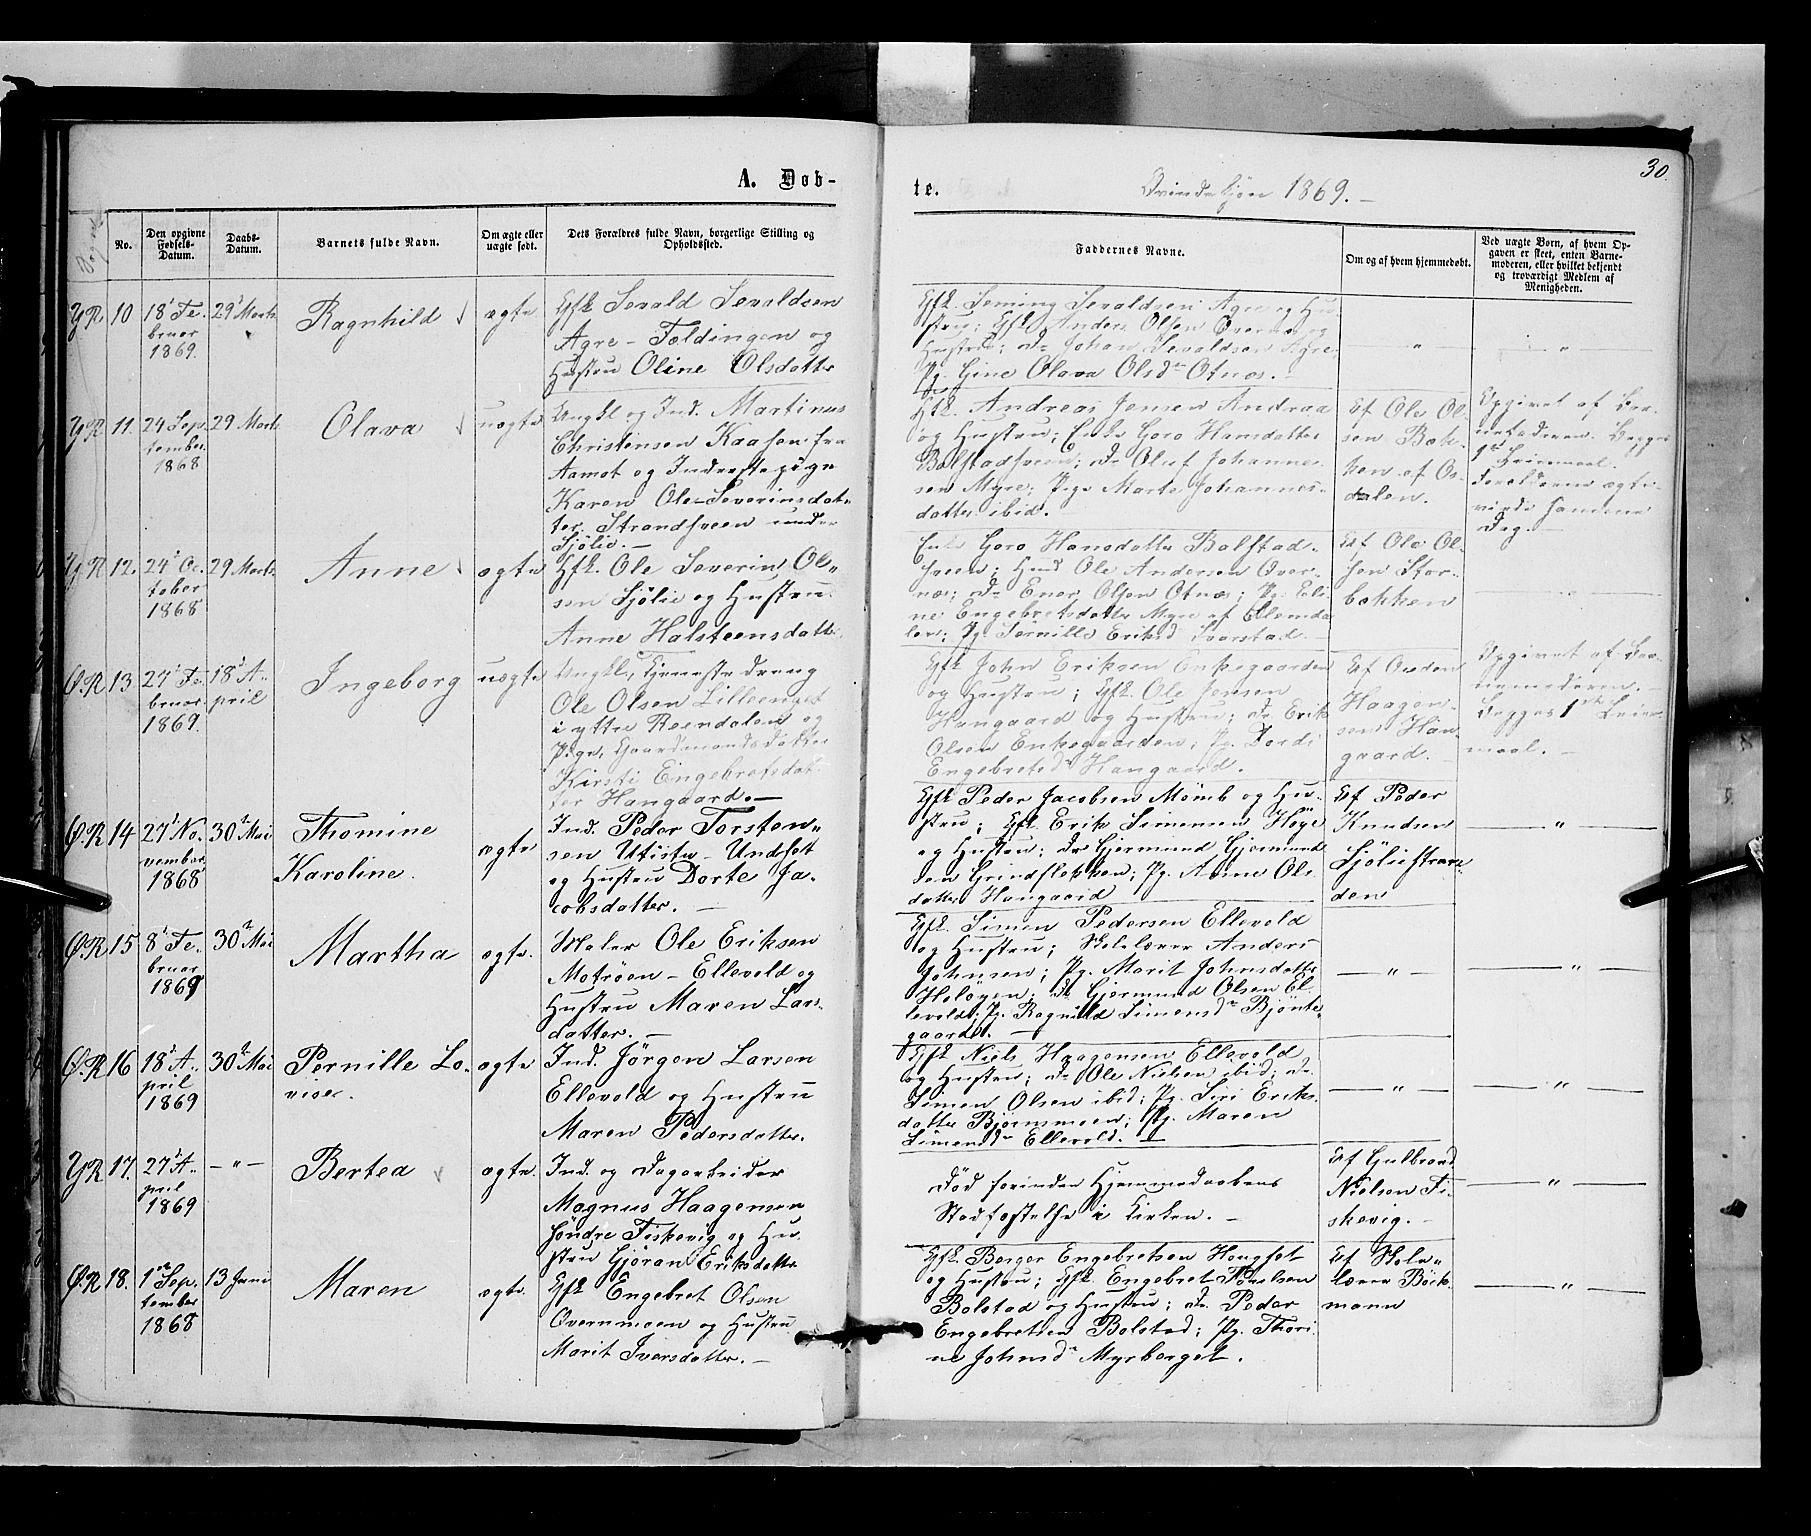 30.
A. Døb-
te. Qvindekjøn 1869. -
No.
Den opgivne Fødsels-Datum.
Daabs-Datum.
Barnets fulde Navn.
Om ægte eller uægte født.
Dets Forældres fulde Navn, borgerlige Stilling og Opholdssted.
Faddernes Navne.
Om og af hvem hjemmedøbt.
Ved uægte Børn, af hvem Op-
gaven er skeet, enten Barne-
moderen, eller hvilket bekjendt
og troværdigt Medlem af
Menigheden.
Y.R. 10
18 Fe-
bruar
1869.
29 Marts
Ragnhild
ægte
Gfk Sevald Sevaldsen
Agre - Foldingen og
Hustru Oline Olsdatter
Gfk. Seming Sevaldsen Agre og Hu-
stru; Gfk. Anders Olsen Øvernæs og
Hustru; Do Johan Sevaldsen Agre
Pg. Gine Olava Olsdr Otnæs. -
Y.R. 11.
24 Sep-
tember
1868
29 Marts
Olava
uægte
Ungkl. og Ind. Martinus
Christensen Kaasen fra
Aamot og Inderstepige
Karen Ole-Severinsdat-
ter Strandsveen under
Sjölie. -
Gfk. Andreas Jensen Andraa
og Hustru; Enke Goro Hansdatter
Bolstadsveen; Do Oluf Johannes-
sen Myre; Pige Marte Johannes-
datter ibid.
Af Ole Ol-
sen Bek-
ken af Os-
dalen.
Opgivet af Bar-
nefaderen. Begges
1ste Leiermaal.
Forældrene ægte-
viede samme
Dag.
Y.R. 12.
24 Oc-
tober
1868
29 Marts
Anne
ægte
Gfk. Ole Severin Ol-
sen Sjölie og Hustru
Anne Halsteensdatter
Enke Goro Hansdatter Bolstad-
sveen; Gmd Ole Andersen Øver-
næs; Do Ener Olsen Otnæs; Pg. Eli-
ne Engebretsdatter Myre af Elvedal
len; Pg. Pernille Eriksd
Af Ole Ol-
sen Stor-
bekken
Ø.R. 13
27 Fe-
bruar
1869.
18 A-
pril
Ingeborg
uægte
Ungkl., Tjenestedreng
Ole Olsen Lilleenget
i yttre Rendalen og
Pige, Gaardmandsdatter
Kirsti Engebretsdat-
ter Hangaard. -
Gfk John Eriksen Enkegaarden
og Hustru; Gfk. Ole Jensen
Hangaard og Hustru; Do Erik
Olsen Enkegaarden; Pg. Dordi
Engebretsdr Hangaard.
Af Amden
Haagen-
sen Han-
gaard.
Opgivet af Bar-
nemoderen. -
Begges 1ste Leier-
maal. -
Ø.R. 14
27 No-
vember
1868
30 Mai
Thomine
Karoline.
ægte
Ind. Peder Torsten-
sen Utistu - Undset
og Hustru Dorte Ja-
cobsdatter. -
Gfk Peder Jacobsen Mömb og Hu-
stru; Gfk. Erik Simensen Höye
og Hustru; Do Gjermund Gjermund-
sen Grindflekken; Pg. Anne Ols-
datter Hangaard
Af Peder
Knudsen
Sjölistran-
den
Ø.R. 15
8 Fe-
bruar
1869
30 Mai
Martha
ægte.
Maler Ole Eriksen
Motröen - Ellevold og
Hustru Maren Lars-
datter. -
Gfk. Simen Pedersen Ellevold
og Hustru; Skolelærer Anders
Johnsen; Pg. Marit Johnsdatter
Holöyen; Do Gjermund Olsen El-
levold; Pg. Ragnild Simensdr Bjönte-
gaardet. -
Ø.R. 16
18 A-
pril
1869
30 Mai
Pernille Lo-
vise.
ægte
Ind. Jörgen Larsen
Ellevold og Hustru
Maren Pedersdatter.
Gfk Niels Haagensen Ellevold
og Hustru; Do Ole Nielsen ibid; Do
Simen Olsen ibid; Pg. Siri Eriks-
datter Björnmoen; Pg. Maren
Simensdr Ellevold.
Y.R. 17.
27 A-
pril
1869
- " -
Bertea
ægte.
Ind. og Dagarbeider
Magnus Haagensen
söndre Fiskevig og Hu-
stru Gjöran Eriksdatter
Död forinden Hjemmedaabens
Stadfæstelse i Kirken. -
Af Gulbrand
Nielsen Fi-
skevig. -
Ø.R. 18.
1 Sep-
tember
1868
13 Juni
Maren
ægte.
Gfk Engebret Olsen
Øvernmoen og Hustru
Marit Iversdatter. -
Gfk. Berger Engebretsen Haugset
og Hustru; Gfk. Engebret
Bolstad og Hustru; Do. Peder
Engebretsen Bolstad; Pg. Thori-
ne Johnsdr Myrberget.
Af Skole-
lærer Böck-
mann